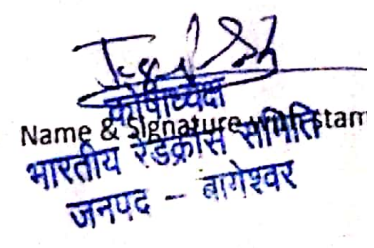 कोषाध्यक्ष
Name & Signature with stam
भारतीय रेडक्रॉस समिति
जनपद - बागेश्वर